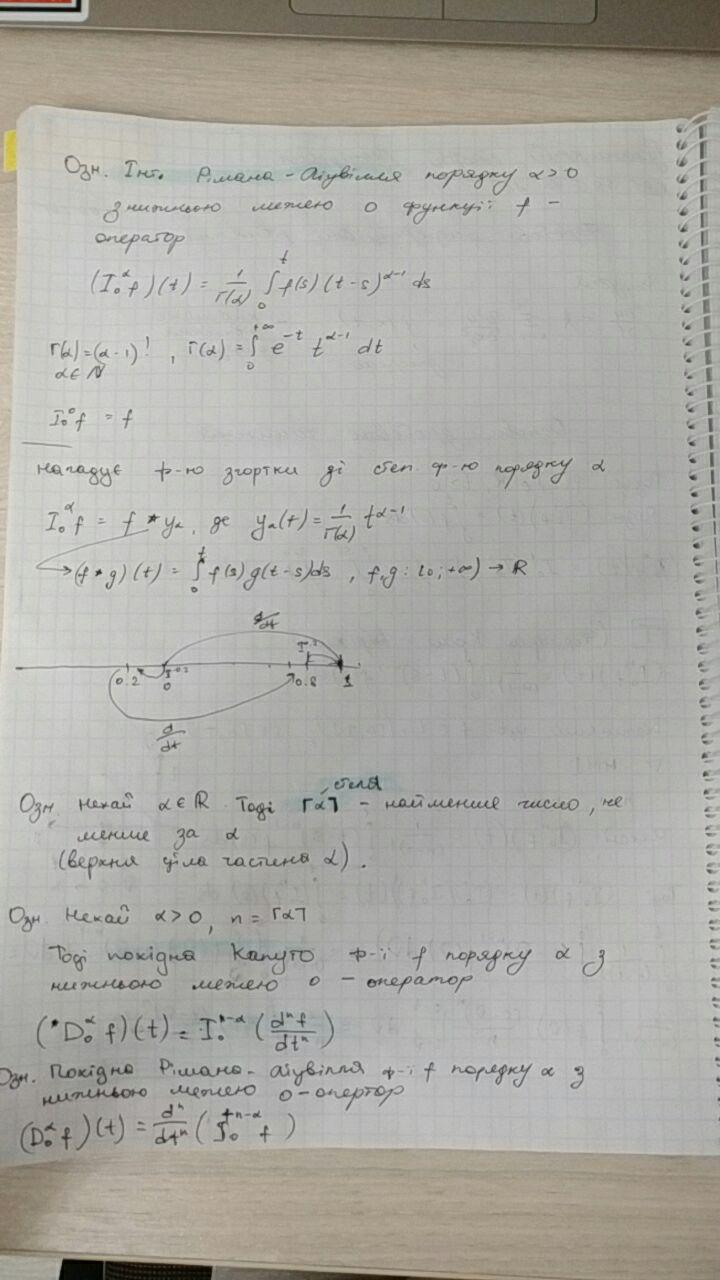 Озн. Інт. Рімана-Ліувілля порядку α>0
з нижньою межею 0 функції f -
оператор
(I₀^α f)(t) = 1/Γ(α) ∫₀^t f(s)(t-s)^(α-1) ds
Γ(α)=(α-1)! , Γ(α) = ∫₀^(+∞) e^(-t) t^(α-1) dt
α∈ℕ
I₀⁰f = f
нагадує ф-ю згортки зі степ. ф-ю порядку α
I₀^α f = f * y_α, де y_α(t) = 1/Γ(α) t^(α-1)
→(f*g)(t) = ∫₀^t f(s)g(t-s)ds , f,g: [0;+∞) → ℝ
d/dt
0.2 0 0.8 1
d/dt
стеля
Озн. Нехай α∈ℝ. Тоді ⌈α⌉ - найменше число, не
менше за α
(верхня ціла частина α).
Озн. Нехай α>0, n = ⌈α⌉
Тоді похідна Капуто ф-ії f порядку α з
нижньою межею 0 - оператор
(*D₀^α f)(t) = I₀^(n-α) (dⁿf/dtⁿ)
Озн. Похідна Рімана-Ліувілля ф-ії f порядку α з
нижньою межею 0-опертор
(D₀^α f)(t) = dⁿ/dtⁿ (I₀^(n-α) f)